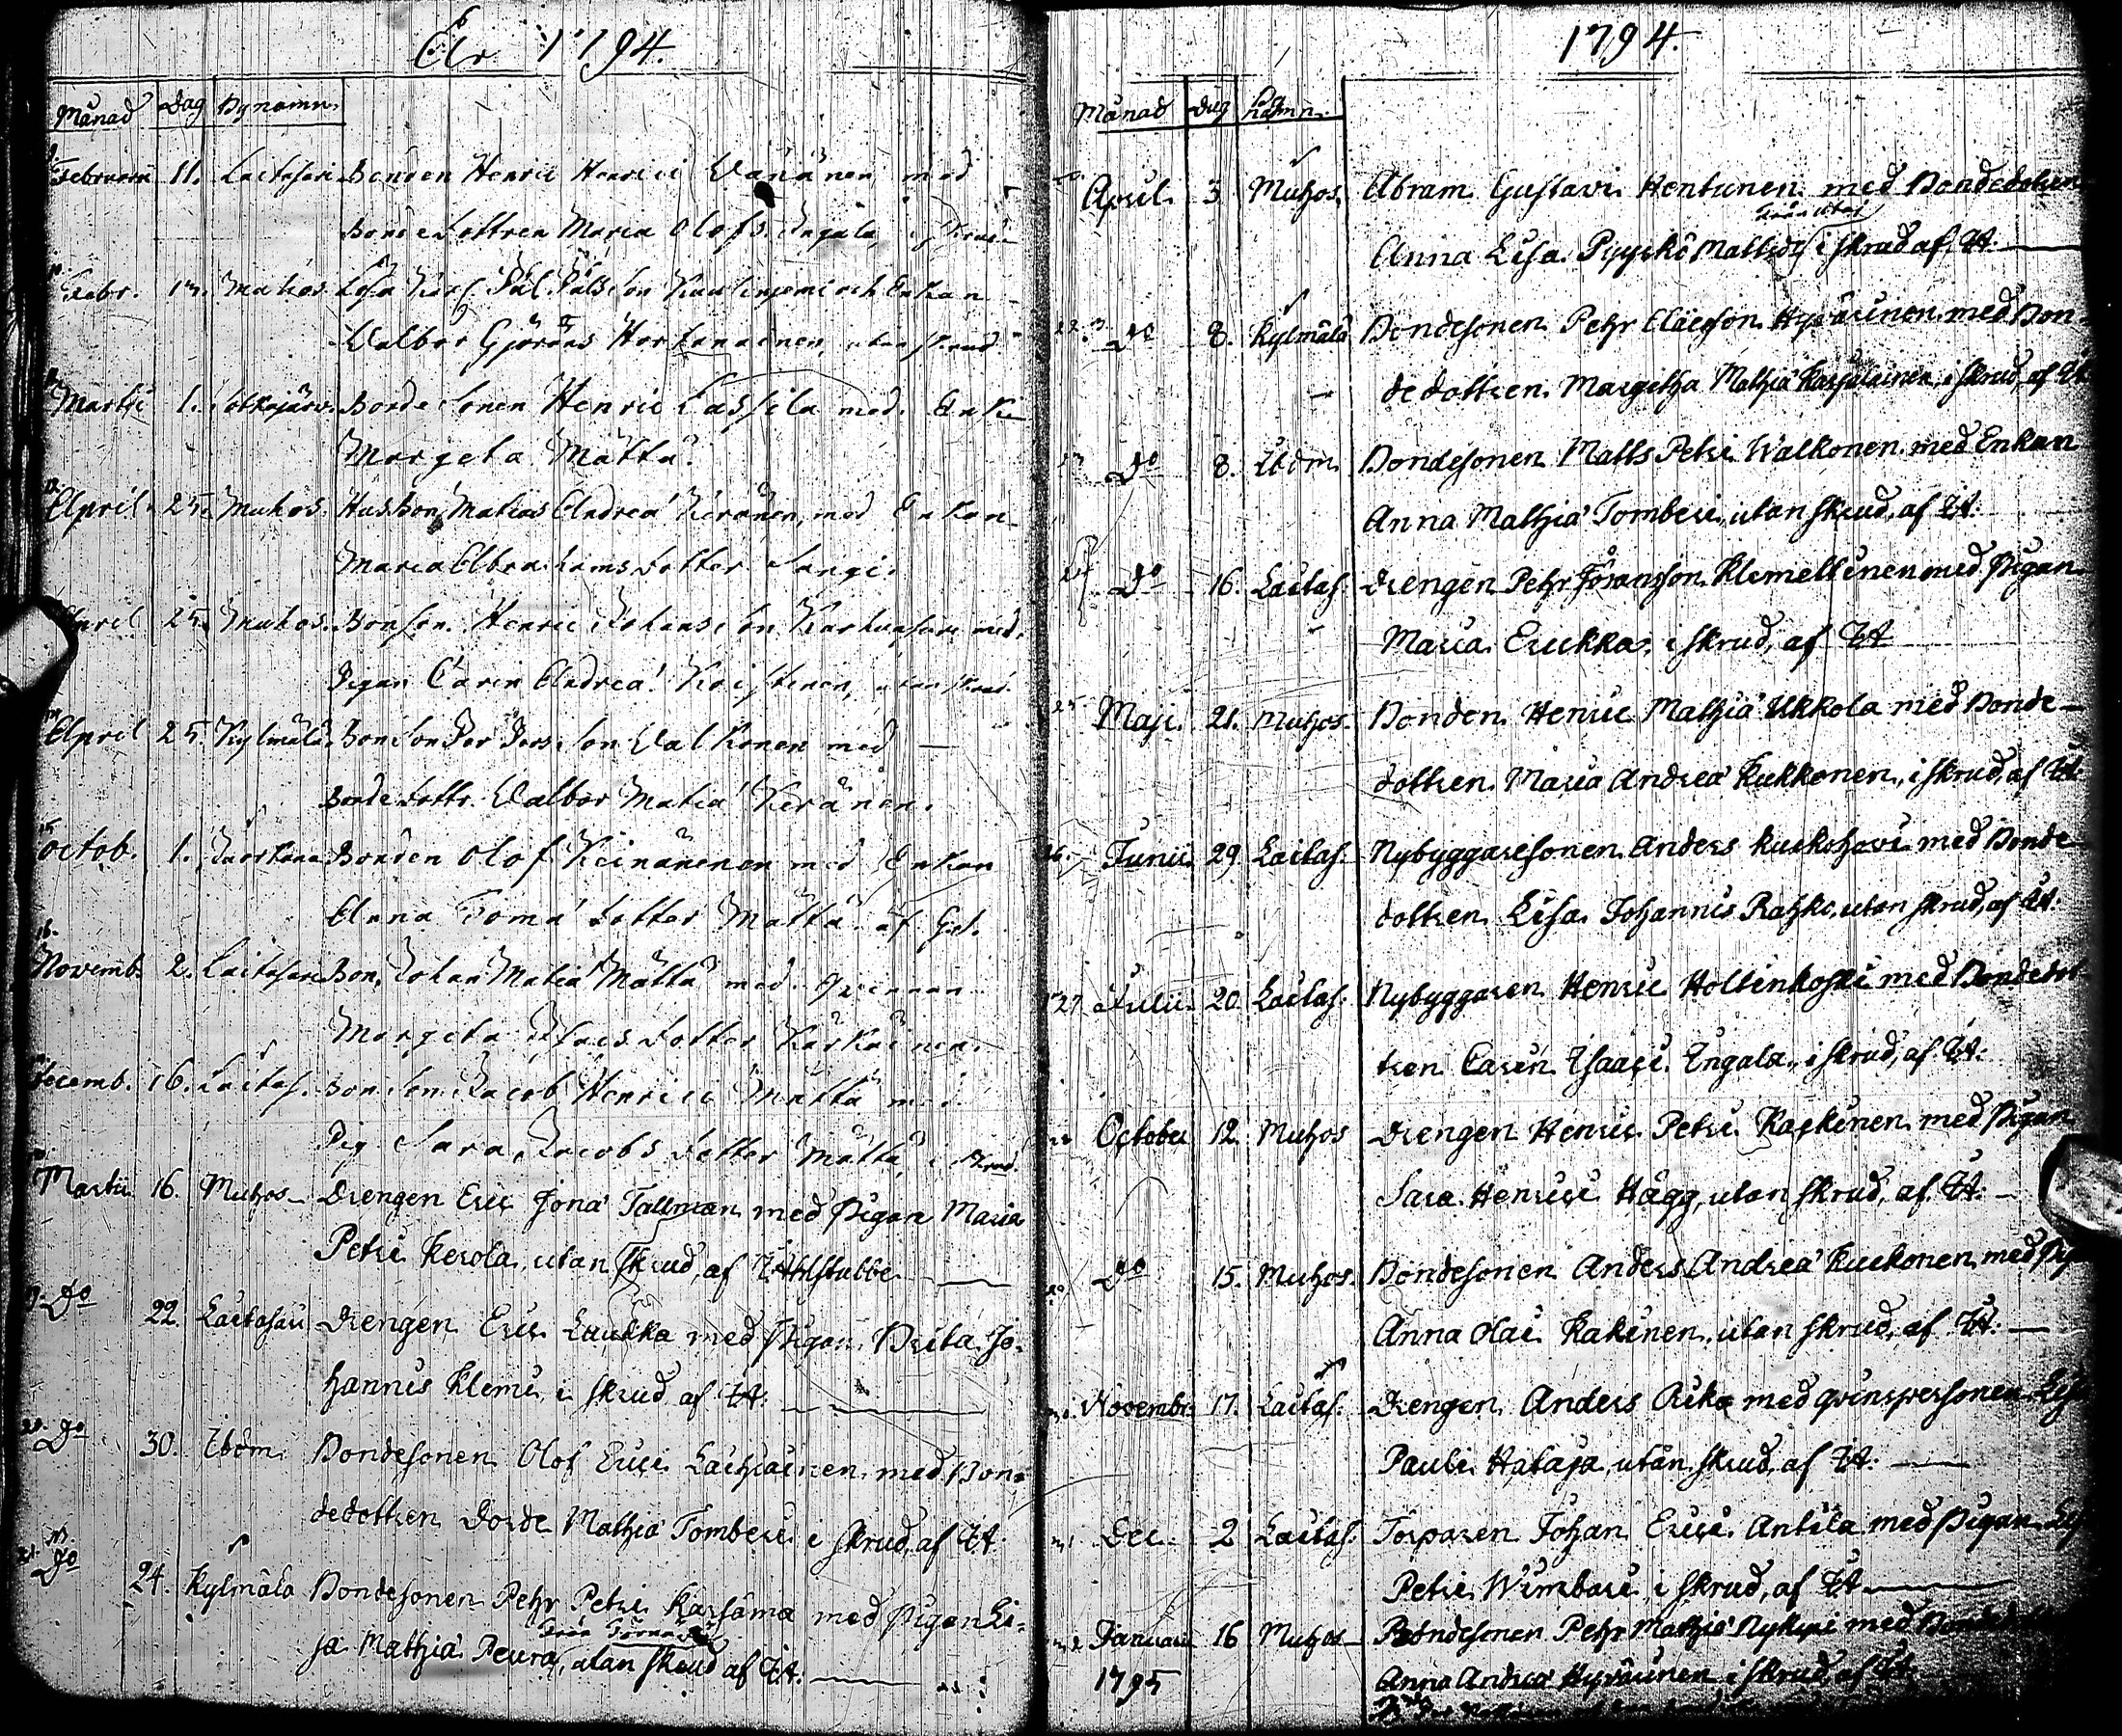 År 1794.
Månad Dag Bynamn.
Februarii 11. Laitasari Bonden Henric Henrici Väänänen med
Bondedottren Maria Olofs Ingala, i skrud
Febr. 13. Muhos Pål Pålsson och Enkan
Valbor Görans utan skrud
Martii 1. Sotkajärv. Bonde Sonen Henric Lassila med Enk
Margeta Mätta.
April 25. Muhos. Matias Andreæ Keränen, med Enkan
Maria Abrahams dotter Sangi.
April 25. Muhos. Bonson Henric Johansson med
Pigan Carin Andreæ Koistinen, utan skrud.
April 25. Kylmälä. Bonson Per Persson Valkonen med —
Bondedottr. Valbor Matiæ Keränen.
Octob. 1. Bonden Olof Keinänenen med Enkan
Anna Tomæ dotter Mätta af
Novemb. 2. Laitasari Bon, Johan Matiæ Mätta med Qvinnan
Margeta Claes dotter Kärkäinen.
Decemb. 16. Laitas. Bonson Jacob Henrici Mätta med
Pig Sara Jacobs dotter Mätta, i skrud.
Martii 16. Muhos Drengen Eric Jonæ Tallman med Pigan Maria
Petri Kerola, utan skrud, af Z. Ahlstubbe
Do 22. Laitasari Drengen Eric Laukka med Pigan Brita Jo-
hannis Klemi, i skrud af ZA.
20. Do 30. Ibdm. Bondesonen Olof Erici Laihiainen med Bon-
dedottren Dorde Mathiæ Tomberi i skrud, af ZA.
21. Do 24. Kylmälä Bondesonen Pehr Petri Karsama med Pigan Li-
från
sa Mathiæ Peura, utan skrud af ZA.
1794.
Månad Dag By namn.
April. 3 Muhos. Abram Gustavi Hentunen med Bondedotren
från
Anna Lisa Pyykö Mattsdr i skrud af ZA.
22. Do 8. Kylmälä Bondesonen Pehr Claesson Hyväinen med Bon-
dedottren Margetha Mathiæ Karjalainen, i skrud, af ZA
Do 8. Ibdm. Bondesonen Matts Petri Walkonen med Enkan
Anna Mathiæ Tomberi, utan skrud, af ZA.
Do 16. Laitas. Drengen Pehr Jöransson Klemettinen med Pigan
Maria Erickka, i skrud, af ZA
25 Maji. 21. Muhos. Bonden Henric Mathiæ Ukkola med Bonde-
dottren Maria Andreæ Kukkonen, i skrud, af ZA
26. Junii 29 Laitas. Nybyggaresonen Anders Kurkohovi med Bonde
dottren Lisa Johannis Rahko, utan skrud, af ZA.
27 Julii. 20 Laitas. Nybyggaren Henric Holtinkoski med Bondedot
tren Carin Isaaci Ingala, i skrud, af ZA.
October 12. Muhos Drengen Henric Petri Kaekinen med Pigan
Sara Henrici Hägg, utan skrud, af ZA.
Do 15. Muhos. Bondesonen Anders Andreæ Kuckonen med
Anna Olai Kakinen, utan skrud, af ZA.
Novembr. 17. Laitas. Drengen Anders Orika med Qvinspersonen
Pauli Hataja, utan skrud, af ZA.
Dec. 2 Laitas. Torparen Johan Erici Antila med Pigan
Petri Wimbari i skrud, af ZA
Januarii 16 Muhos Bondesonen Pehr Mathiæ Nykyri med
1795 Anna Andreæ Hyväinen i skrud, af ZA.